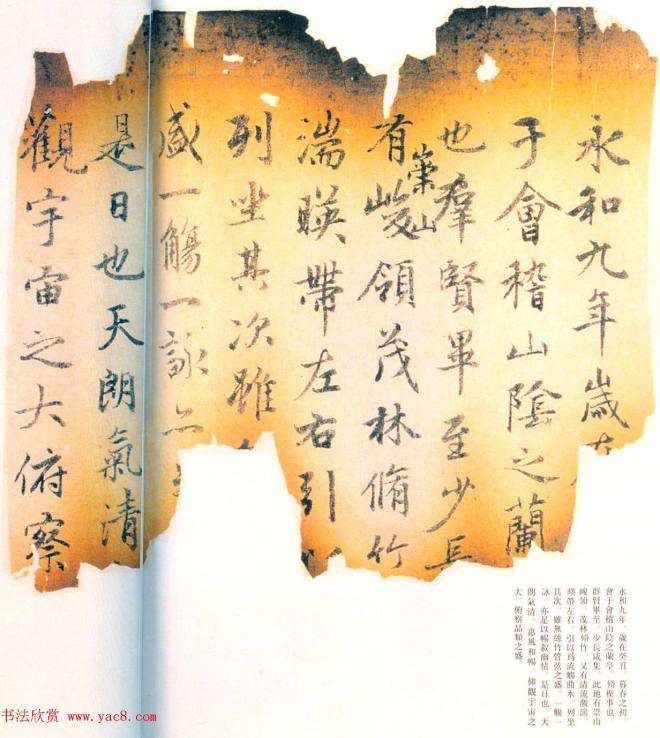 永和九年歲在
于會稽山陰之蘭
也羣賢畢至少長
有崇山峻領茂林脩竹
湍暎帶左右引以
列坐其次雖
盛一觴一詠亦足
是日也天朗氣清
觀宇宙之大俯察
永和九年，歲在癸丑，暮春之初，
會于會稽山陰之蘭亭，脩禊事也。
群賢畢至，少長咸集。此地有崇山
峻領，茂林脩竹，又有清流激湍，
暎帶左右，引以爲流觴曲水，列坐
其次。雖無絲竹管弦之盛，一觴一
詠，亦足以暢叙幽情。是日也，天
朗氣清，惠風和暢，仰觀宇宙之
大，俯察品類之盛。
书法欣赏 www.yac8.com